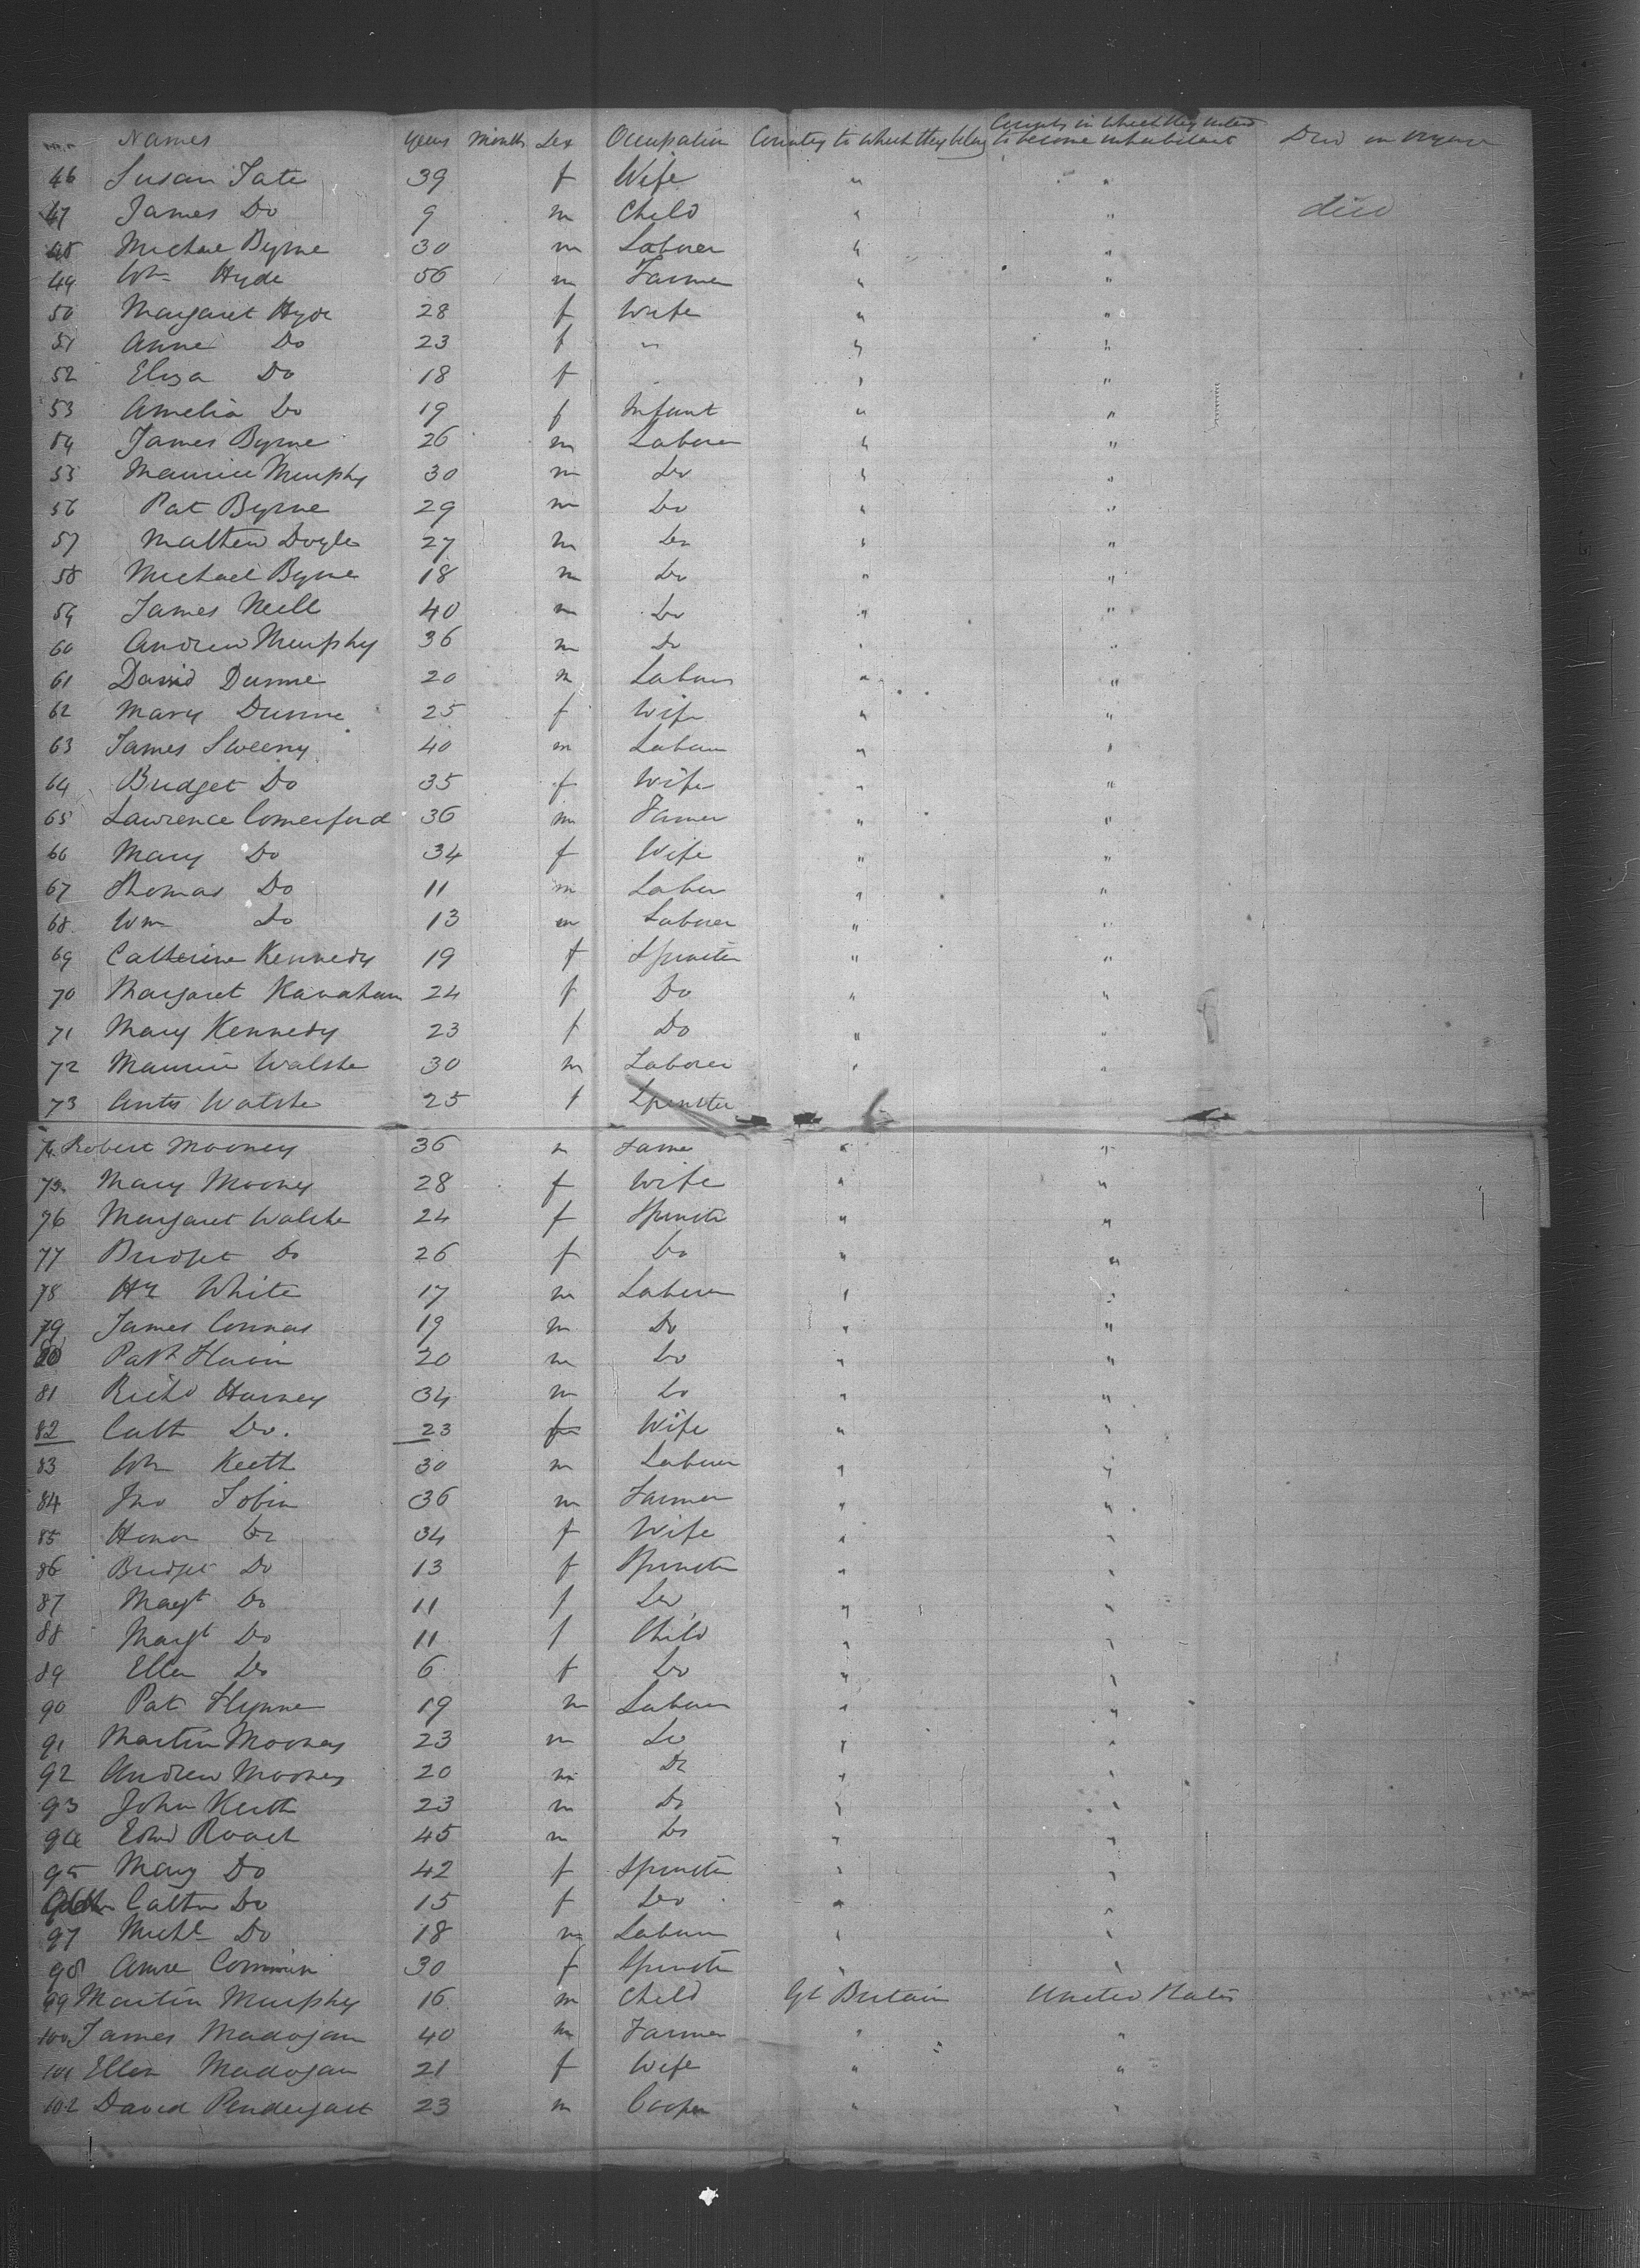 No. Names Years Months Sex Occupation Country to which they belong Country in which they intend to become inhabitant Died on voyage
46 Susan Tate 39 f Wife " "
47 James Do 9 m Child " " died
48 Michae Byrne 30 m Laborer " "
49 Wm Hyde 56 m Farmer " "
50 Margaret Hyde 28 f Wife " "
51 Anne Do 23 f " " "
52 Eliza Do 18 f " "
53 Amelia Do 19 f Infant " "
54 James Byrne 26 m Laborer " "
55 Maurice Murphy 30 m Do " "
56 Pat Byrne 29 m Do " "
57 Mathew Doyle 27 m Do " "
58 Michael Byrne 18 m Do " "
59 James Neill 40 m Do " "
60 Andrew Murphy 36 m Do " "
61 David Dunne 20 m Laborer " "
62 Mary Dunne 25 f Wife " "
63 James Sweeny 40 m Laborer " "
64 Bridget Do 35 f Wife " "
65 Lawrence Comerford 36 m Farmer " "
66 Mary Do 34 f Wife " "
67 Thomas Do 11 m Labor " "
68 Wm Do 13 m Laborer " "
69 Catherine Kennedy 19 f Spinster " "
70 Margaret Kavaham 24 f Do " "
71 Mary Kennedy 23 f Do " "
72 Maurice Walshe 30 m Laborer " "
73 Walshe 25 f Spinster
74 Robert Mooney 36 m Farmer " "
75 Mary Mooney 28 f Wife " "
76 Margaret Walshe 24 f Spinster " "
77 Bridget Do 26 f Do " "
78 Hy White 17 m Laborer " "
79 James Connas 19 m Do " "
80 Patk 20 m Do " "
81 Richd Harney 34 m Do " "
82 Cath Do. 23 f Wife " "
83 Wm Keeth 30 m Laborer " "
84 Jno Tobin 36 m Farmer " "
85 Honor Do 34 f Wife " "
86 Bridget Do 13 f Spinster " "
87 Magt Do 11 f Do " "
88 Margt Do 11 f Child " "
89 Ellen Do 6 f Do " "
90 Pat Flynne 19 m Laborer " "
91 Martin Mooney 23 m Do " "
92 Andrew Mooney 20 m Do " "
93 John Keeth 23 m Do " "
94 Edwd Roach 45 m Do " "
95 Mary Do 42 f Spinster " "
96 Cathn Do 15 f Do " "
97 Michl Do 18 m Laborer " "
98 Anne Commin 30 f Spinster " "
99 Martin Murphy 16 m Child Gt Britain United States
100 James Madogan 40 m Farmer " "
101 Ellen Madogan 21 f Wife " "
102 David Pendergast 23 m Cooper " "